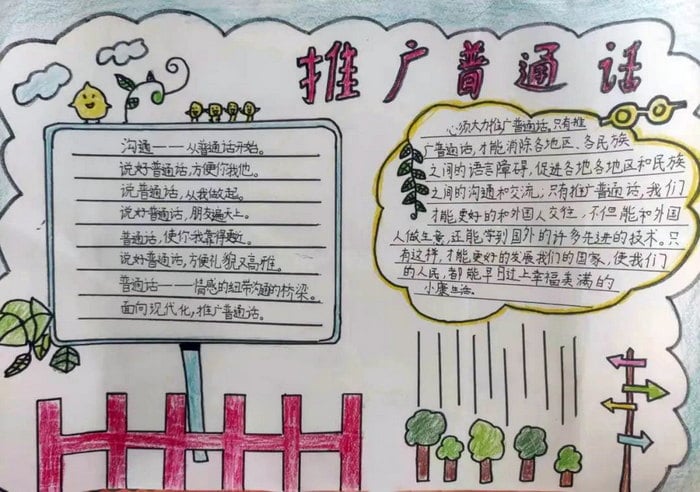 推广普通话
沟通——从普通话开始。
说好普通话,方便你我他。
说普通话,从我做起。
说好普通话,朋友遍天下。
普通话,使你我靠得更近。
说好普通话,方便礼貌又高雅。
普通话——情感的纽带沟通的桥梁。
面向现代化,推广普通话。
心须大力推广普通话。只有推
广普通话,才能消除各地区、各民族
之间的语言障碍,促进各地各地区和民族
之间的沟通和交流;只有推广普通话,我们
才能更好的和外国人交往,不但能和外国
人做生意,还能学到国外的许多先进的技术。只
有这样,才能更好的发展我们的国家,使我们
的人民,都能早日过上幸福美满的
小康生活。